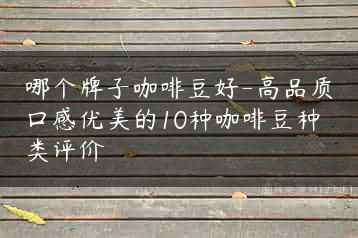 哪个牌子咖啡豆好-高品质
口感优美的10种咖啡豆种
类评价